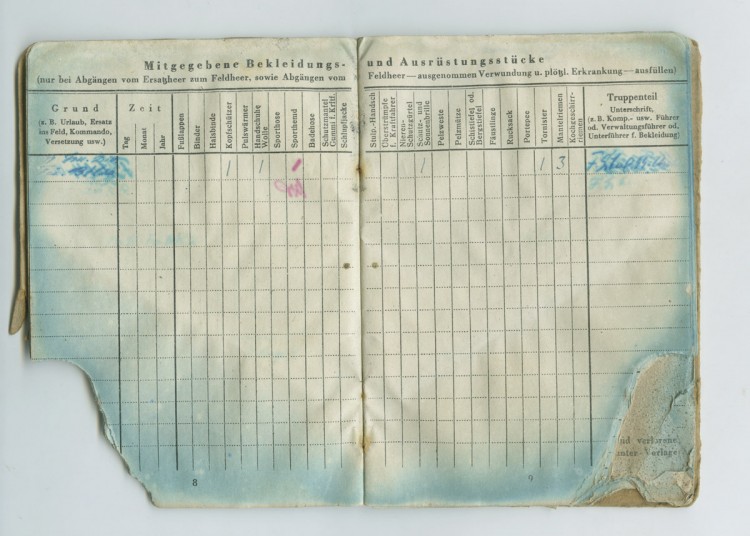 Mitgegebene Bekleidungs-
(nur bei Abgängen vom Ersatzheer zum Feldheer, sowie Abgängen vom
Grund
(z. B. Urlaub, Ersatz
ins Feld, Kommando,
Versetzung usw.)
Zeit
Tag
Monat
Jahr
Fußlappen
Binder
Halsbinde
Kopfschützer
Pulswärmer
Handschuhe
Wolle
Sporthose
Sporthemd
Badehose
Schutzmantel
Gummi f. Krftf.
Schlupfjacke
1 1 1
8
und Ausrüstungsstücke
Feldheer — ausgenommen Verwundung u. plötzl. Erkrankung — ausfüllen)
Stulp.-Handsch
Überstrümpfe
f. Kraftfahrer
Nieren-
Schutzgürtel
Schutz- und
Sonnenbrille
Pelzweste
Pelzmütze
Schistiefel od.
Bergstiefel
Fäustlinge
Rucksack
Portepee
Tornister
Mantelriemen
Kochgeschirr-
riemen
Truppenteil
Unterschrift,
(z. B. Komp.- usw. Führer
od. Verwaltungsführer od.
Unterführer f. Bekleidung)
1 1 3
und verlorene
unter Vorlage
9